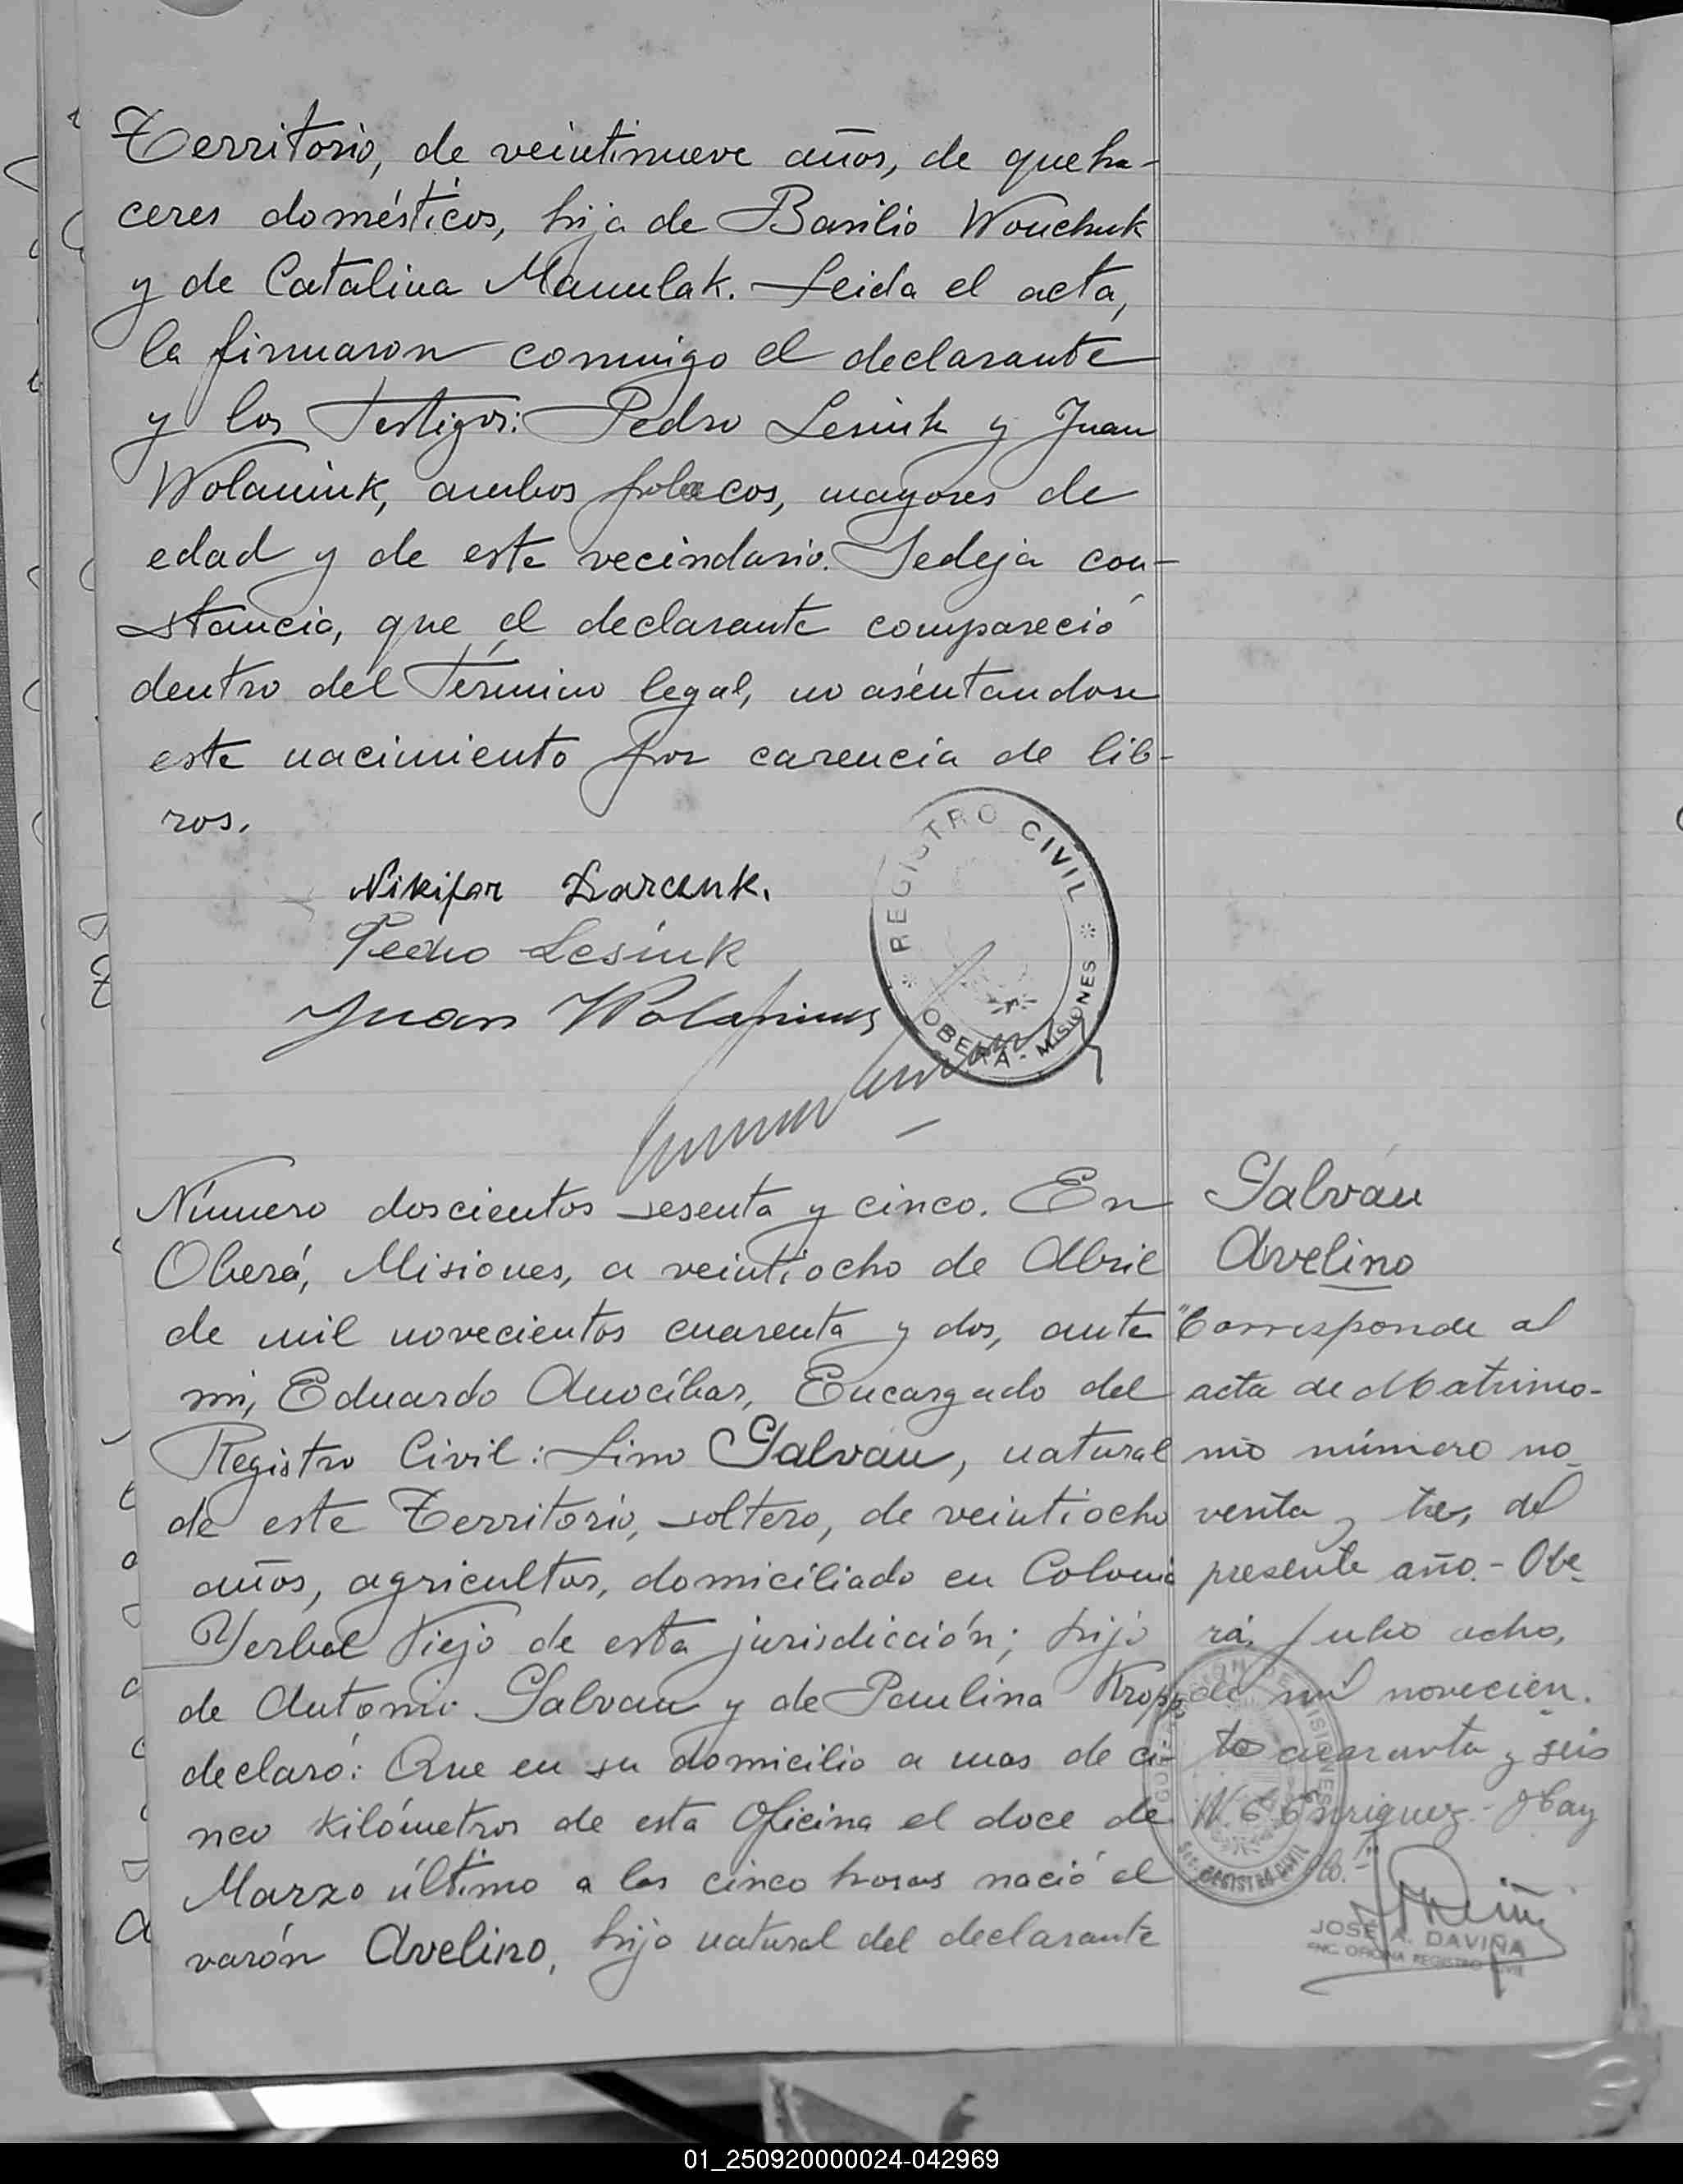 Territorio, de veintinueve años, de queha-
ceres domésticos, hija de Basilio Wouchuk
y de Catalina Manulak. Leida el acta,
la firmaron conmigo el declarante
y los testigos: Pedro Lesiuk y Juan
Wolaniuk, ambos polacos, mayores de
edad y de este vecindario. Se deja con-
stancia, que el declarante compareció
dentro del término legal, no asentandose
este nacimiento por carencia de lib-
ros.
REGISTRO CIVIL
OBERÁ - MISIONES
Nikifor Darczuk.
Pedro Lesiuk
Juan
Número doscientos sesenta y cinco. En
Oberá, Misiones, a veintiocho de Abril
de mil novecientos cuarenta y dos, ante
mi, Eduardo Anocíbar, Encargado del
Registro Civil: Lino Galván, natural
de este Territorio, soltero, de veintiocho
años, agricultor, domiciliado en Colonia
Yerbal Viejo de esta jurisdicción; hijo
de Antonio Galvan y de Paulina Kropp
declaró: Que en su domicilio a mas de ci-
nco kilómetros de esta Oficina el doce de
Marzo último a las cinco horas nació el
varón Avelino, hijo natural del declarante
Galván
Avelino
"Corresponde al
acta de Matrimo-
nio número no-
venta y tres, del
presente año.- Obe-
rá, Julio ocho,
de mil novecien-
tos cuarenta y seis
N. E. Enriquez.- Hay
REGISTRO CIVIL
JOSÉ A. DAVIÑA
ENC. OFICINA REGISTRO CIVIL
01_250920000024-042969